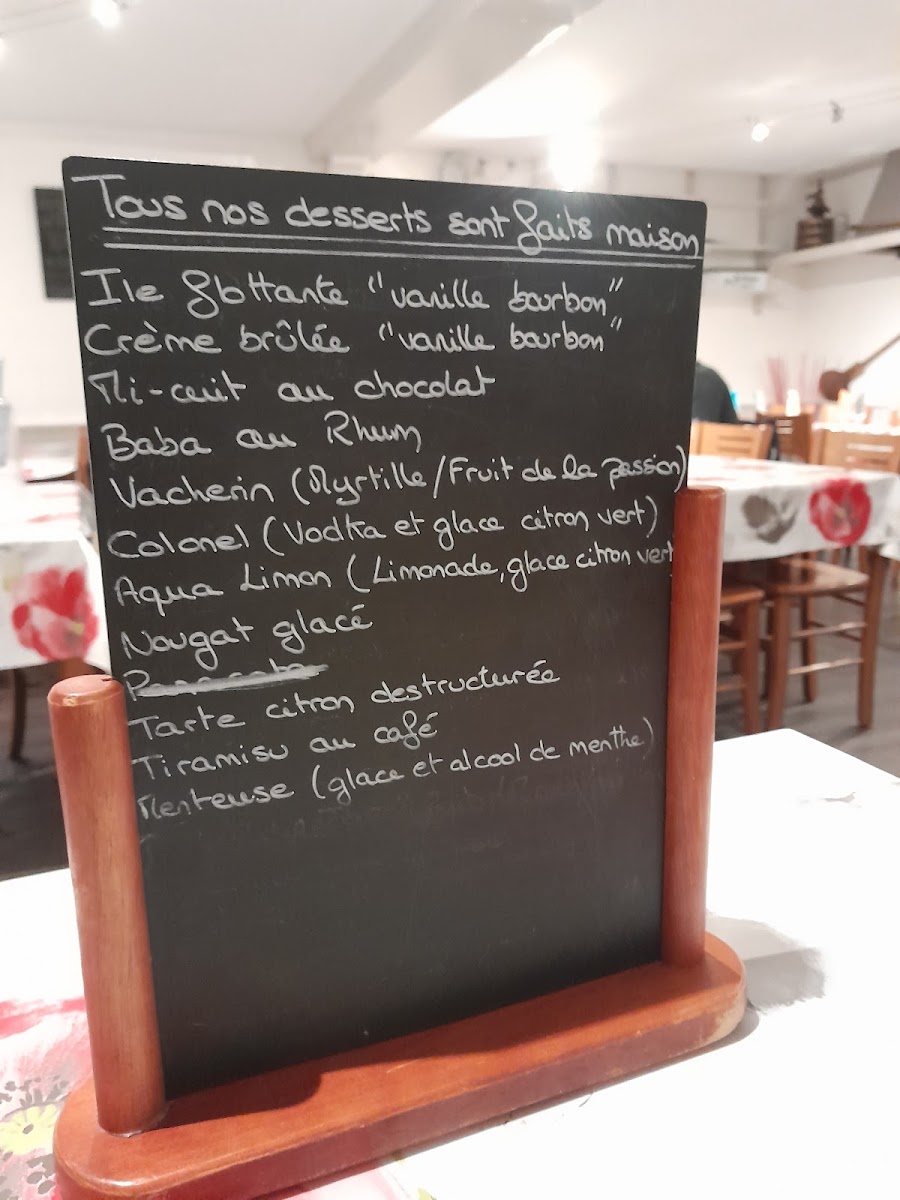 Tous nos desserts sont faits maison
Ile flottante "vanille bourbon"
Crème brûlée "vanille bourbon"
Mi-cuit au chocolat
Baba au Rhum
Vacherin (Myrtille/Fruit de la passion)
Colonel (Vodka et glace citron vert)
Aqua Limon (Limonade, glace citron vert
Nougat glacé
Tarte citron destructurée
Tiramisu au café
Menteuse (glace et alcool de menthe)